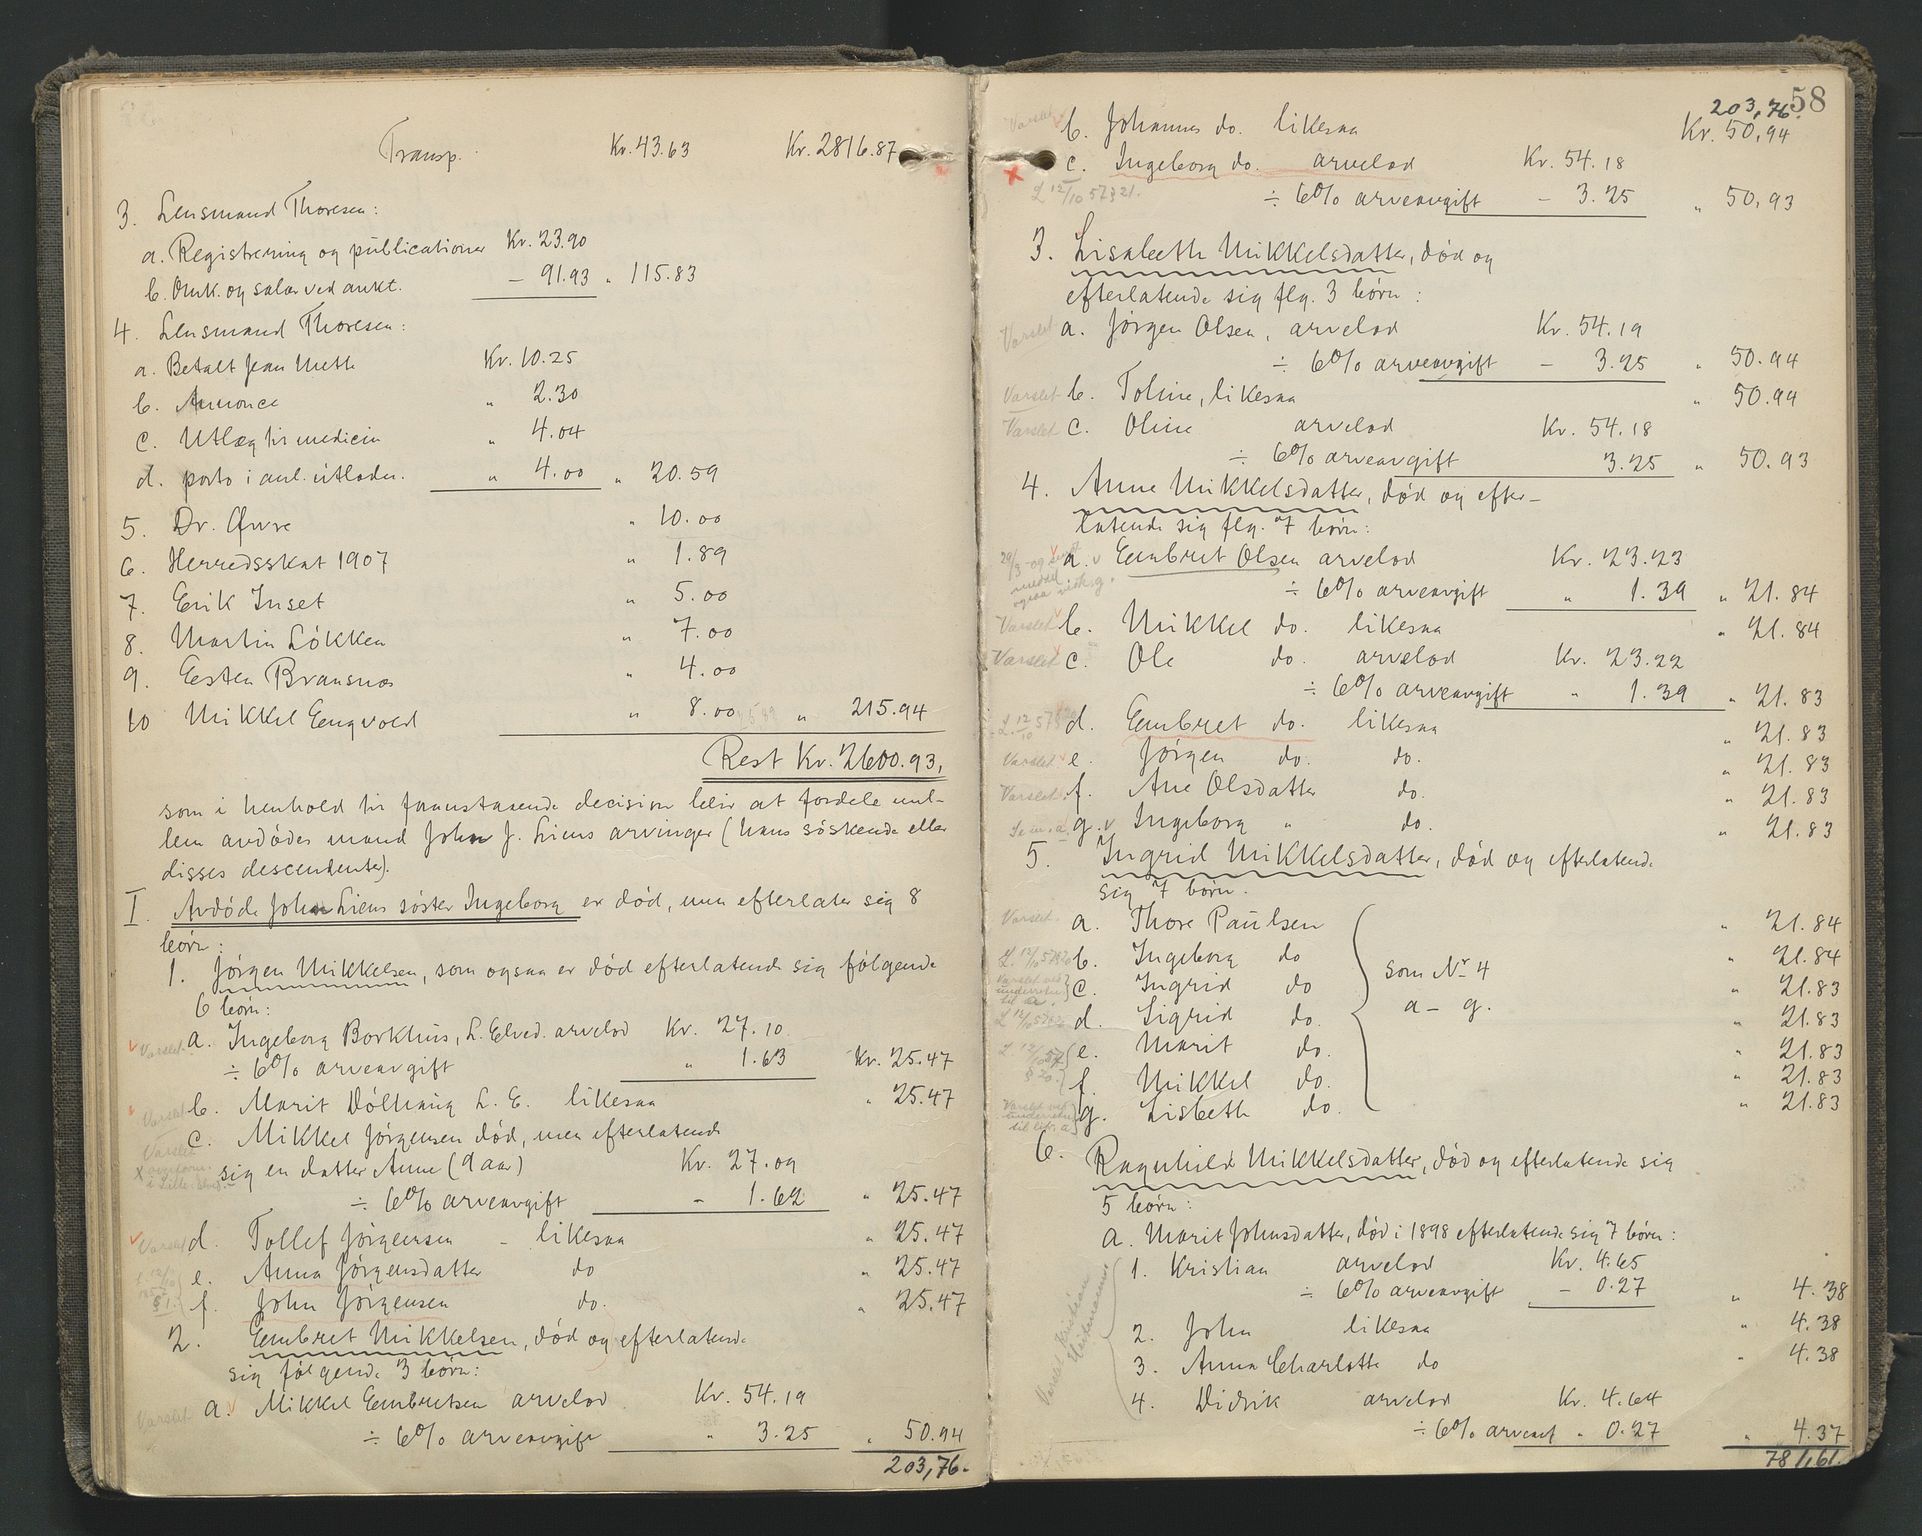 Transp. Kr. 43.63 Kr. 2816.87
3. Lensmand Thoresen:
a. Registrering og publicationer Kr. 23.90
b. Omk. og salær ved aukt. - 91.93 " 115.83
4. Lensmand Thoresen:
a. Betalt Jean Meth Kr. 10.25
b. Annonce " 2.30
c. Utlæg til medicin " 4.04
d. porto i anl. utlodn. " 4.00 " 20.59
5. Dr. Øwre " 10.00
6. Herredsskat 1907 " 1.89
7. Erik Inset " 5.00
8. Martin Løkken " 7.00
9. Eesten Bransnæs " 4.00
10 Mikkel Eengvold " 8.00 " 215.94
Rest Kr. 2600.93,
som i henhold til foranstaaende decision blir at fordele mel-
lem avdødes mand John J. Liens arvinger (hans søskende eller
disses descendenter).
I. Avdøde John Liens søster Ingeborg er død, men efterlater sig 8
børn:
1. Jørgen Mikkelsen, som ogsaa er død efterlatende sig følgende
6 børn:
Varslet a. Ingeborg Borkhus, L. Elved. arvelod Kr. 27.10
÷ 6% arveavgift " 1.63 Kr. 25.47
Varslet b. Marit Døltraing L. E. likesaa " 25.47
c. Mikkel Jørgensen død, men efterlatende
Varslet
sig en datter Anne (9 aar) Kr. 27.09
÷ 6% arveavgift - 1.62 " 25.47
Varslet d. Tollef Jørgensen - likesaa " 25.47
e. Anna Jørgensdatter do " 25.47
f. John Jørgensen do. " 25.47
2. Eembret Mikkelsen, død og efterlatende
sig følgende 3 børn:
Varslet a. Mikkel Eembretsen arvelod Kr. 54.19
÷ 6% arveavgift " 3.25 " 50.94
203,76.
58
203,76.
Varslet b. Johannes do. likesaa Kr. 50,94
c. Ingeborg do. arvelod Kr. 54.18
L 12/10 57321.
÷ 6% arveavgift - 3.25 " 50,93
3. Lisabeth Mikkelsdatter, død og
efterlatende sig flg. 3 børn:
Varslet a. Jørgen Olsen, arvelod Kr. 54.19
÷ 6% arveavgift - 3.25 " 50.94
Varslet b. Toline, likesaa " 50.94
Varslet c. Oline arvelod Kr. 54.18
÷ 6% arveavgift 3.25 " 50.93
4. Anne Mikkelsdatter, død og efter-
latende sig flg. 7 børn:
a. Eembret Olsen arvelod Kr. 23.23
÷ 6% arveavgift " 1.39 " 21.84
Varslet b. Mikkel do. likesaa " 21.84
Varslet c. Ole do. arvelod Kr. 23.22
÷ 6% arveavgift " 1.39 " 21.83
d. Eembret do. likesaa " 21.83
Varslet e. Jørgen do. do. " 21.83
Varslet f. Ane Olsdatter do. " 21.83
g. Ingeborg " do. " 21.83
5. Ingrid Mikkelsdatter, død og efterlatende
sig 7 børn.
Varslet a. Thore Paulsen " 21.84
b. Ingeborg do " 21.84
som Nr 4
Varslet ved underretn. til a. c. Ingrid do " 21.83
a - g.
d. Sigrid do. " 21.83
e. Marit do. " 21.83
f. Mikkel do. " 21.83
Varslet ved underretn. til litr. a g. Lisbeth do. " 21.83
6. Ragnhild Mikkelsdatter, død og efterlatende sig
5 børn:
a. Marit Johnsdatter, død i 1898 efterlatende sig 7 børn:
1. Kristian arvelod Kr. 4.65
÷ 6% arveavgift - 0.27 " 4.38
2. John likesaa " 4.38
3. Anna Charlotte do " 4.38
4. Didrik arvelod Kr. 4.64
÷ 6% arveavf " 0.27 " 4.37
781,61.